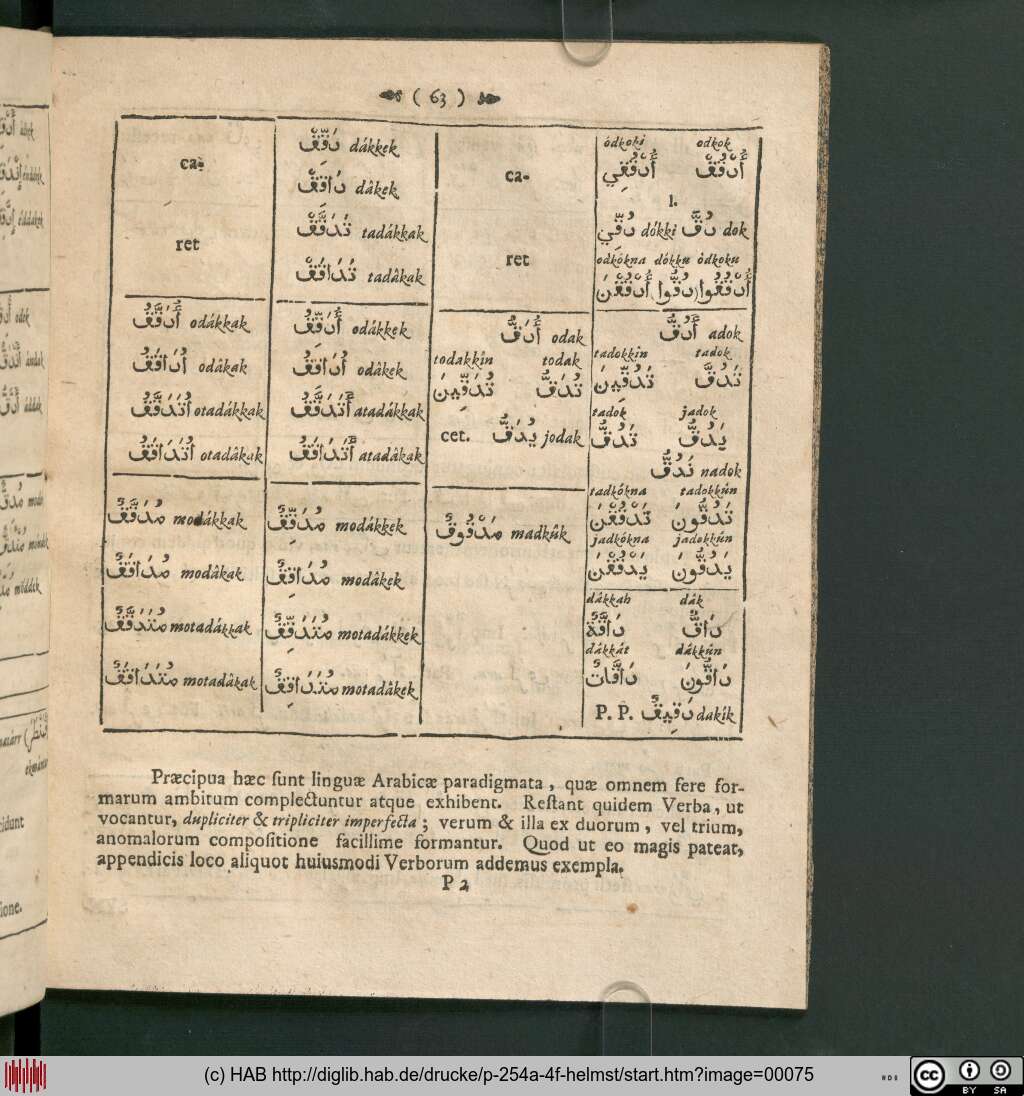 ( 63 )
ca-
ret
أُدَقَّقُ odákkak
أُدَاقَقُ odâkak
أُتَدَقَّقُ otadákkak
أُتَدَاقَقُ otadâkak
مُدَقَّقٌ modákkak
مُدَاقَقٌ modâkak
مُتَدَقَّقٌ motadákkak
مُتَدَاقَقٌ motadâkak
دَقِّقْ dákkek
دَاقِقْ dâkek
تَدَقَّقْ tadákkak
تَدَاقَقْ tadâkak
أُدَقِّقُ odákkek
أُدَاقِقُ odâkek
أَتَدَقَّقُ atadákkak
أَتَدَاقَقُ atadâkak
مُدَقِّقٌ modákkek
مُدَاقِقٌ modâkek
مُتَدَقِّقٌ motadákkek
مُتَدَاقِقٌ motadâkek
ca-
ret
أُدَقُّ odak
todakkîn todak
تُدَقِّينَ تُدَقُّ
cet. يُدَقُّ jodak
مَدْقُوقٌ madkûk
ódkoki odkok
أُدْقُقِي أُدْقُقْ
l.
دُقِّي dókki دُقَّ dok
odkókna dókku òdkoku
أُدْقُقُوا دُقُّوا أُدْقُقْنَ
أَدُقُّ adok
tadokkîn tadok
تَدُقِّينَ تَدُقُّ
tadok jadok
تَدُقُّ يَدُقُّ
نَدُقُّ nadok
tadkókna tadokkûn
تَدْقُقْنَ تَدُقُّونَ
jadkókna jadokkûn
يَدْقُقْنَ يَدُقُّونَ
dákkah dák
دَاقَّةٌ دَاقٌّ
dákkát dákkûn
دَاقَّاتٌ دَاقُّونَ
P. P. دَقِيقٌ dakík
Præcipua hæc sunt linguæ Arabicæ paradigmata, quæ omnem fere for-
marum ambitum complectuntur atque exhibent. Restant quidem Verba, ut
vocantur, dupliciter & tripliciter imperfecta; verum & illa ex duorum, vel trium,
anomalorum compositione facillime formantur. Quod ut eo magis pateat,
appendicis loco aliquot huiusmodi Verborum addemus exempla.
P 2
(c) HAB http://diglib.hab.de/drucke/p-254a-4f-helmst/start.htm?image=00075
cc BY SA